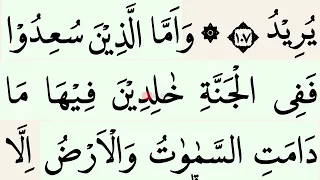 يُرِيْدُ ﴿١٠٧﴾ وَاَمَّا الَّذِيْنَ سُعِدُوْا
فَفِى الْجَنَّةِ خٰلِدِيْنَ فِيْهَا مَا
دَامَتِ السَّمٰوٰتُ وَالْاَرْضُ اِلَّا